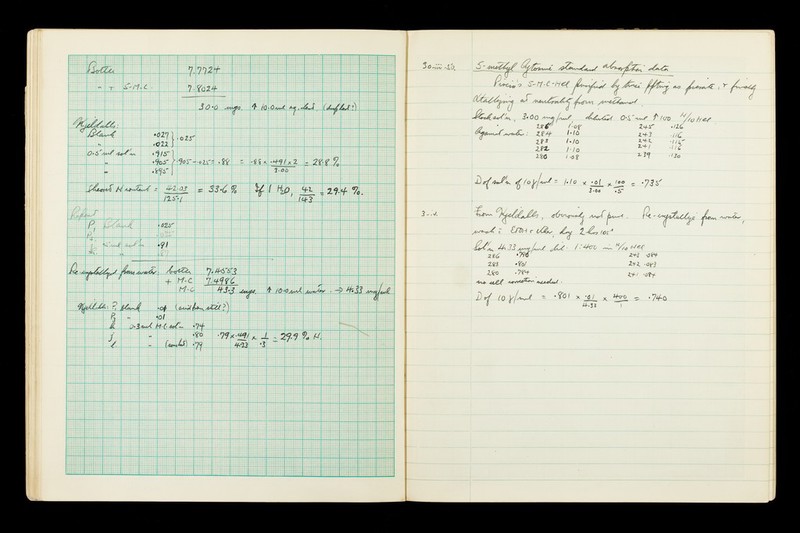 Bottle 7.7724
" + 5-M.C. 7.8024
30.0 mgs. ↑ 10.0 ml aq. dest.
Kjeldahls:
Blank .027
" .022 } .025
0.5 ml sol'n .915
" .905
" .895 } .905 - .025 = .88 = .88 × .491 × 2 / 3.00 = 28.8 %
Theoret N content = 42.03 / 125.1 = 33.6 % If 1 H2O, 42 / 143 = 29.4 %.
Repeat
P, blank .025
.91
Re-crystallized from water: bottle 7.4553
+ M.C 7.4986
M.C 43.3 mgs. ↑ 10.0 ml water → 4.33 mg/ml
Kjeldahls: P, blank .01
P2 " .01
k 0.3 ml M.C sol'n .74
j " .80 .79 × .491 / 4.33 × 1 / .3 = 29.9 % N.
l " .79
5-methyl Cytosine standard absorption data
5-M.C. HCl purified by twice ppting as picrate, & finally
crystallizing at neutrality from
Stock sol'n, 3.00 mg/ml, diluted 0.5 ml ↑ 100 N/10 HCl
Against water: 286 1.08 245 .126
284 1.10 243 .116
283 1.10 242 .115
282 1.10 241 .116
280 1.08 239 .130
D of sol'n of 10 γ/ml = 1.10 × .01 / 3.00 × 100 / .5 = .735
From Kjeldahls, obviously not pure. Re-crystallize from water,
wash: EtOH & ether, dry 2 hrs 105°
Sol'n 4.33 mg/ml dil. 1:400 in N/10 HCl
286 .790 243 .084
283 .801 242 .083
280 .784 241 .084
no cell correction needed.
D of 10 γ/ml = .801 × .01 / 4.33 × 400 / 1 = .740